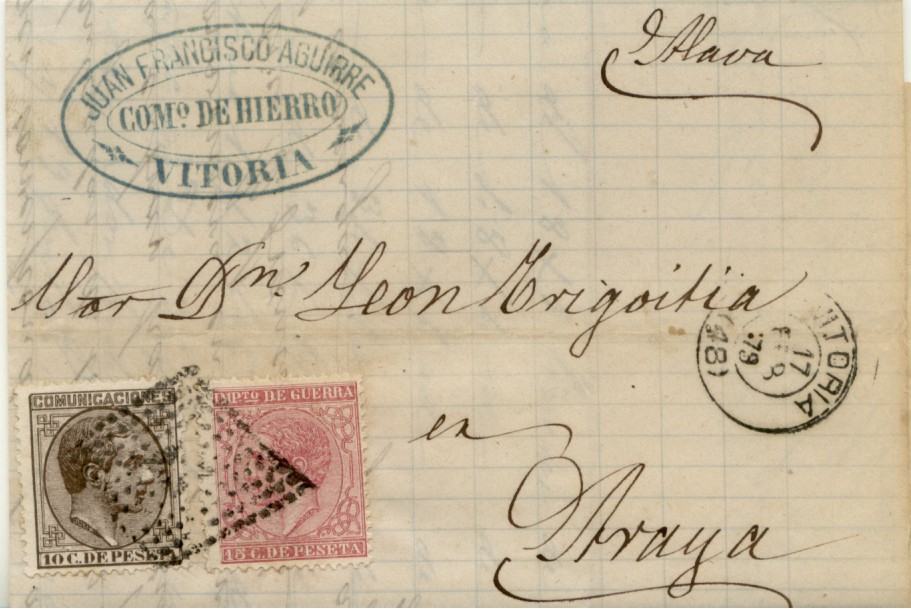 JUAN FRANCISCO AGUIRRE
COMº. DE HIERRO
VITORIA
Alava
Sor Dn. Leon Trigoitia
VITORIA
17
FEB
79
(48)
en
Araya
COMUNICACIONES
10 C. DE PESETA
IMPTO DE GUERRA
15 C. DE PESETA